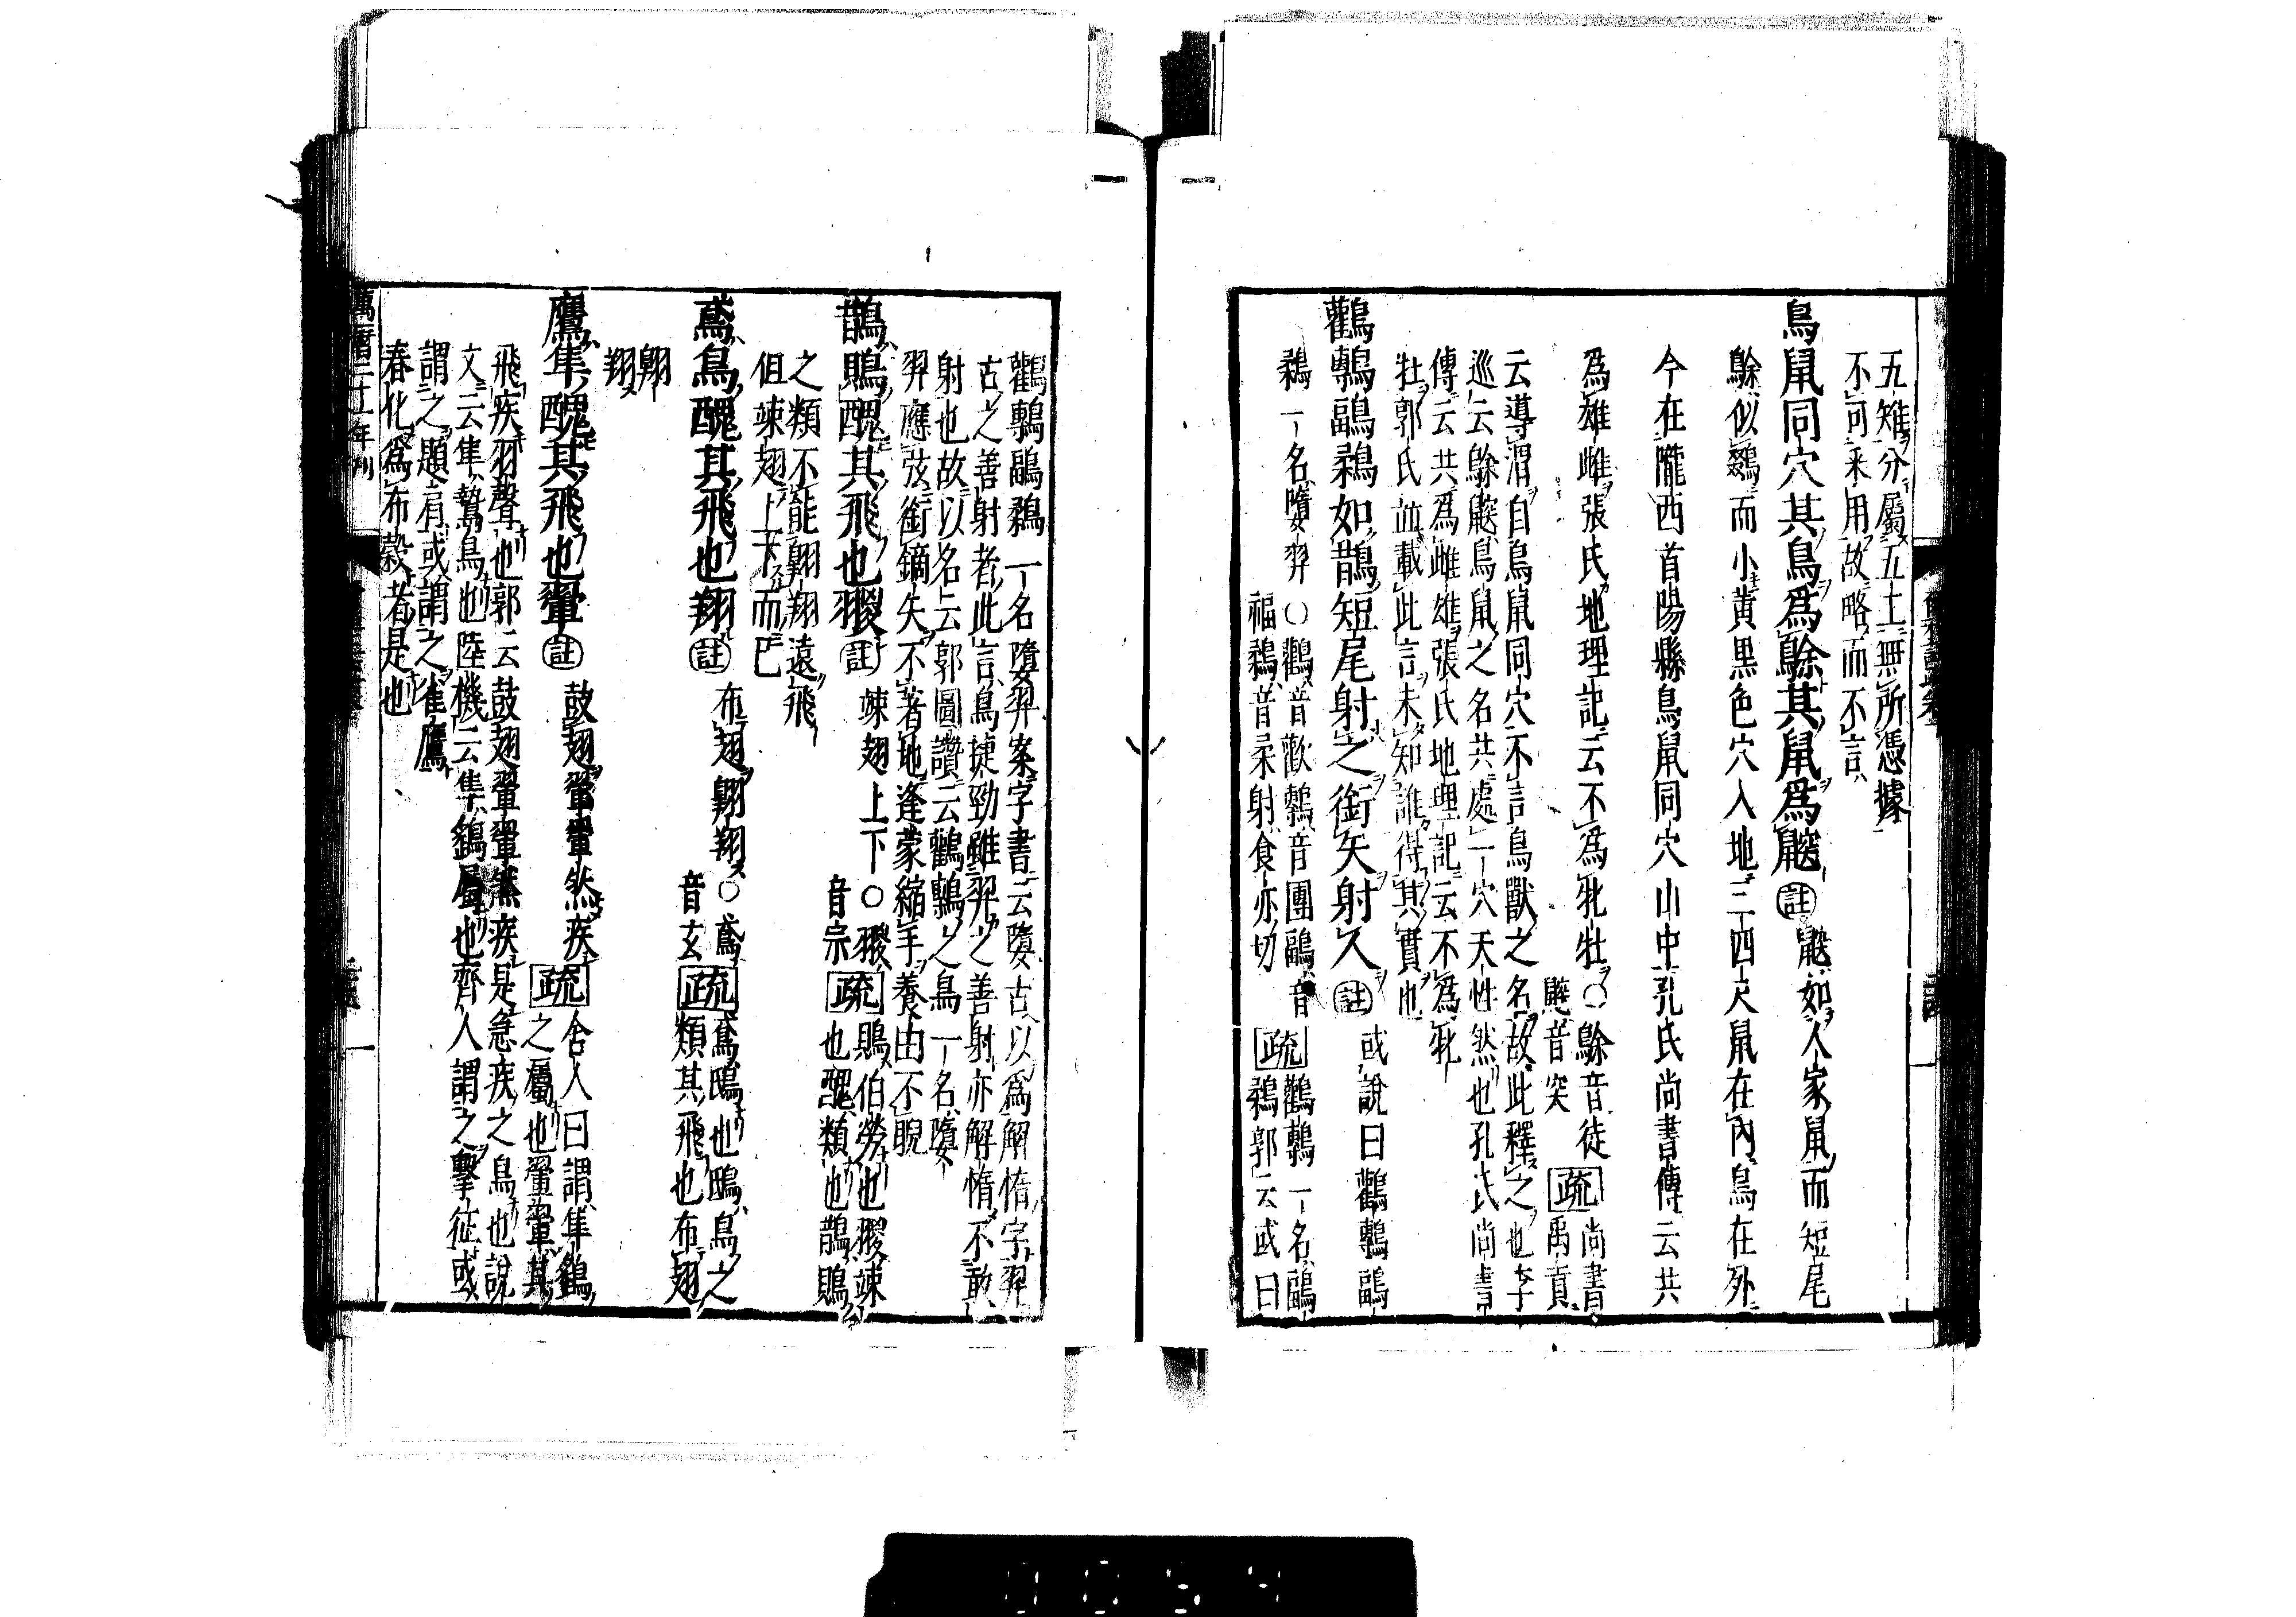 五雉分屬五土無所憑據
不可采用故略而不言
鳥鼠同穴其鳥為鵌其鼠為鼵註鼵如人家鼠而短尾
鵌似鵽而小黃黑色穴入地三四尺鼠在內鳥在外
今在隴西首陽縣鳥鼠同穴山中孔氏尚書傳云共
為雄雌張氏地理記云不為牝牡○鵌音徒
鼵音突疏尚書
禹貢
云導渭自鳥鼠同穴不言鳥獸之名故此釋之也李
巡云鵌鼵鳥鼠之名共處一穴天性然也孔氏尚書
傳云共為雌雄張氏地理記云不為牝
牡郭氏並載此言未知誰得其實也
鸛鷒鶝鶔如鵲短尾射之銜矢射人註或說曰鸛鷒鶝
鶔一名墮羿○鸛音歡鷒音團鶝音
福鶔音柔射食亦切疏鸛鷒一名鶝
鶔郭云或曰
鸛鷒鶝鶔一名墮羿案字書云墮古以為解惰字羿
古之善射者此言鳥捷勁雖羿之善射亦解惰不敢
射也故以名云郭圖讚云鸛鷒之鳥一名墮
羿應弦銜鏑矢不著地逢蒙縮手養由不睨
鵲鵙醜其飛也翪註竦翅上下○翪
音宗疏鵙伯勞也翪竦
也醜類也鵲鵙
之類不能翱翔遠飛
但竦翅上下而已
鳶烏醜其飛也翔註布翅翱翔○鳶
音玄疏鳶鴟也鴟鳥之
類其飛也布翅
翱
翔
鷹隼醜其飛也翬註鼓翅翬翬然疾疏舍人曰謂隼鷂
之屬也翬翬其
飛疾羽聲也郭云鼓翅翬翬然疾是急疾之鳥也說
文云隼鷙鳥也陸機云隼鷂屬也齊人謂之擊征或
謂之題肩或謂之雀鷹
春化為布穀者是也
萬曆二十一年刊